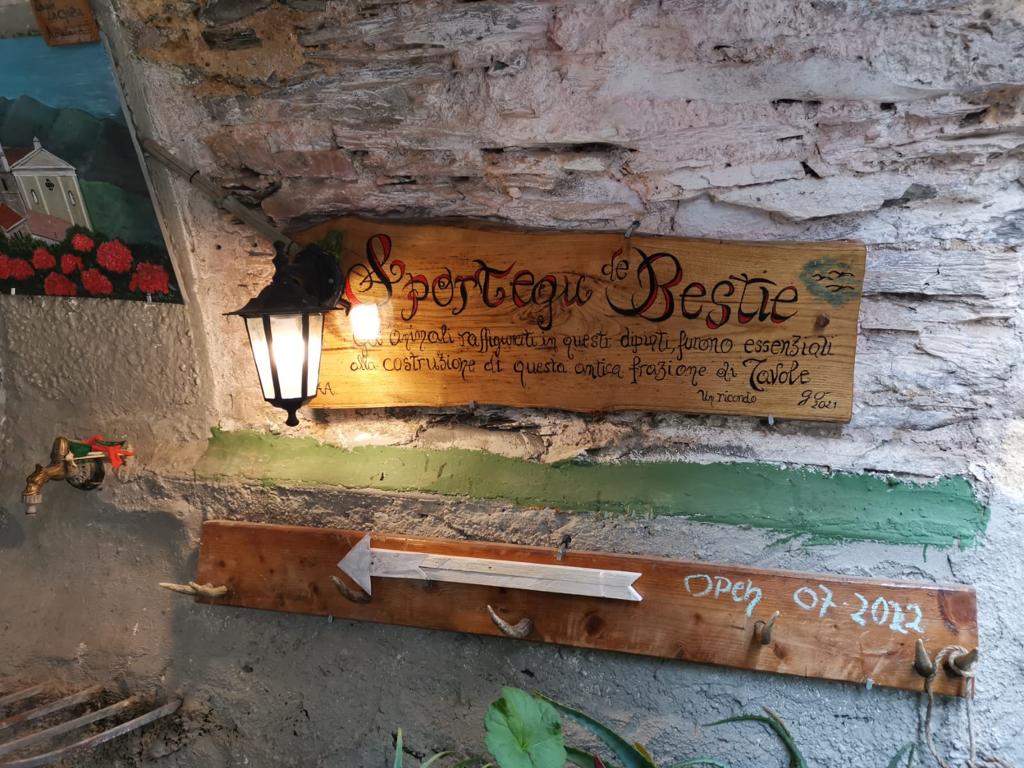 Sportegu de Bestie
Gli animali raffigurati in questi dipinti, furono essenziali
alla costruzione di questa antica frazione di Tavole
Un ricordo
2021
Open 07-2022